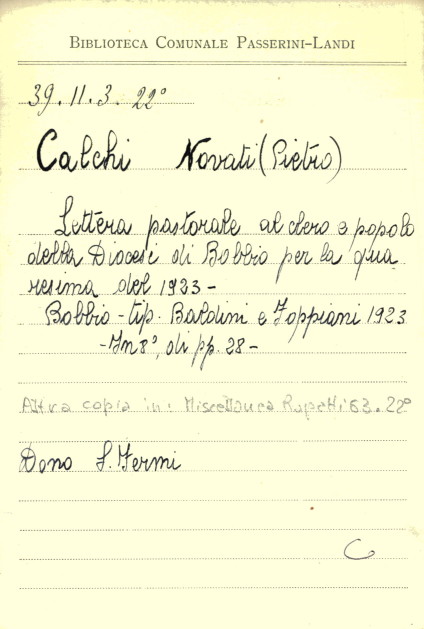 BIBLIOTECA COMUNALE PASSERINI-LANDI
39. II. 3. 22°
Calchi Novati (Pietro)
Lettera pastorale al clero e popolo
della Diocesi di Bobbio per la qua
resima del 1923 -
Bobbio - tip. Baldini e Foppiani 1923
- In 8°, di pp. 28 -
Altra copia in: Miscellanea Rapetti 63. 22°
Dono S. Fermi
C